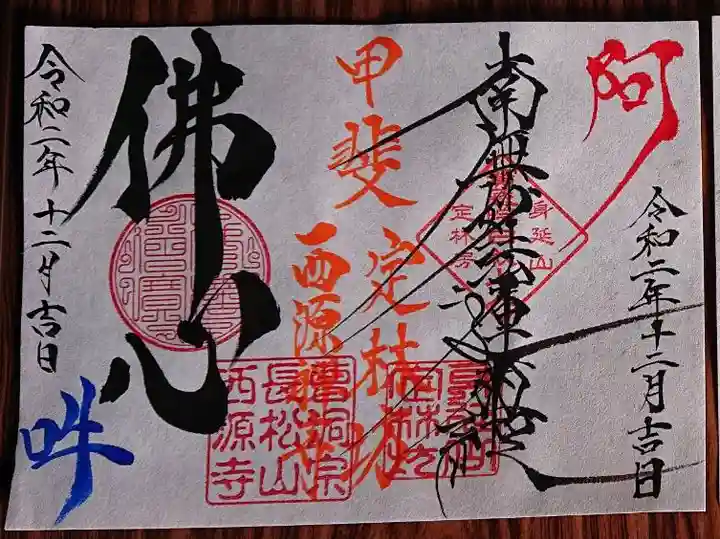 阿
令和二年十二月吉日
南無妙法蓮華経
身延山
定林房
甲斐定林坊
西源禅寺
佛心
曹洞宗
長松山
西源寺
令和二年十二月吉日
吽